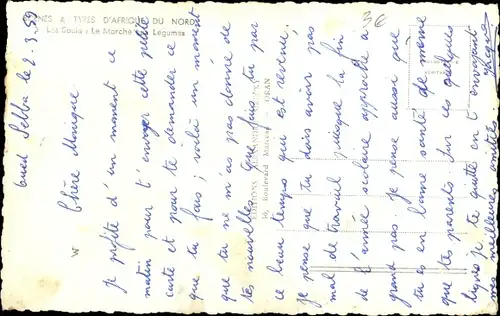 SCÈNES & TYPES D'AFRIQUE DU NORD
Les Souks : Le Marché aux Légumes
Oued Sebba le 2.3.59
Chère Monique
Je profite d'un moment ce
matin pour t'envoyer cette petite
carte et pour te demander ce
que tu fais ; voilà un moment
que tu ne m'as pas donné de
tes nouvelles. Que fais tu par
ce beau temps qui est revenu.
Je pense que tu dois avoir pas
mal de travail puisque la fin
de l'année scolaire approche à
grand pas. Je pense aussi que
tu es en bonne santé de même
que tes parents. Sur ces quelques
lignes je te quitte en t'envoyant
mes meilleures amitiés
Jacques
3€
ORAN